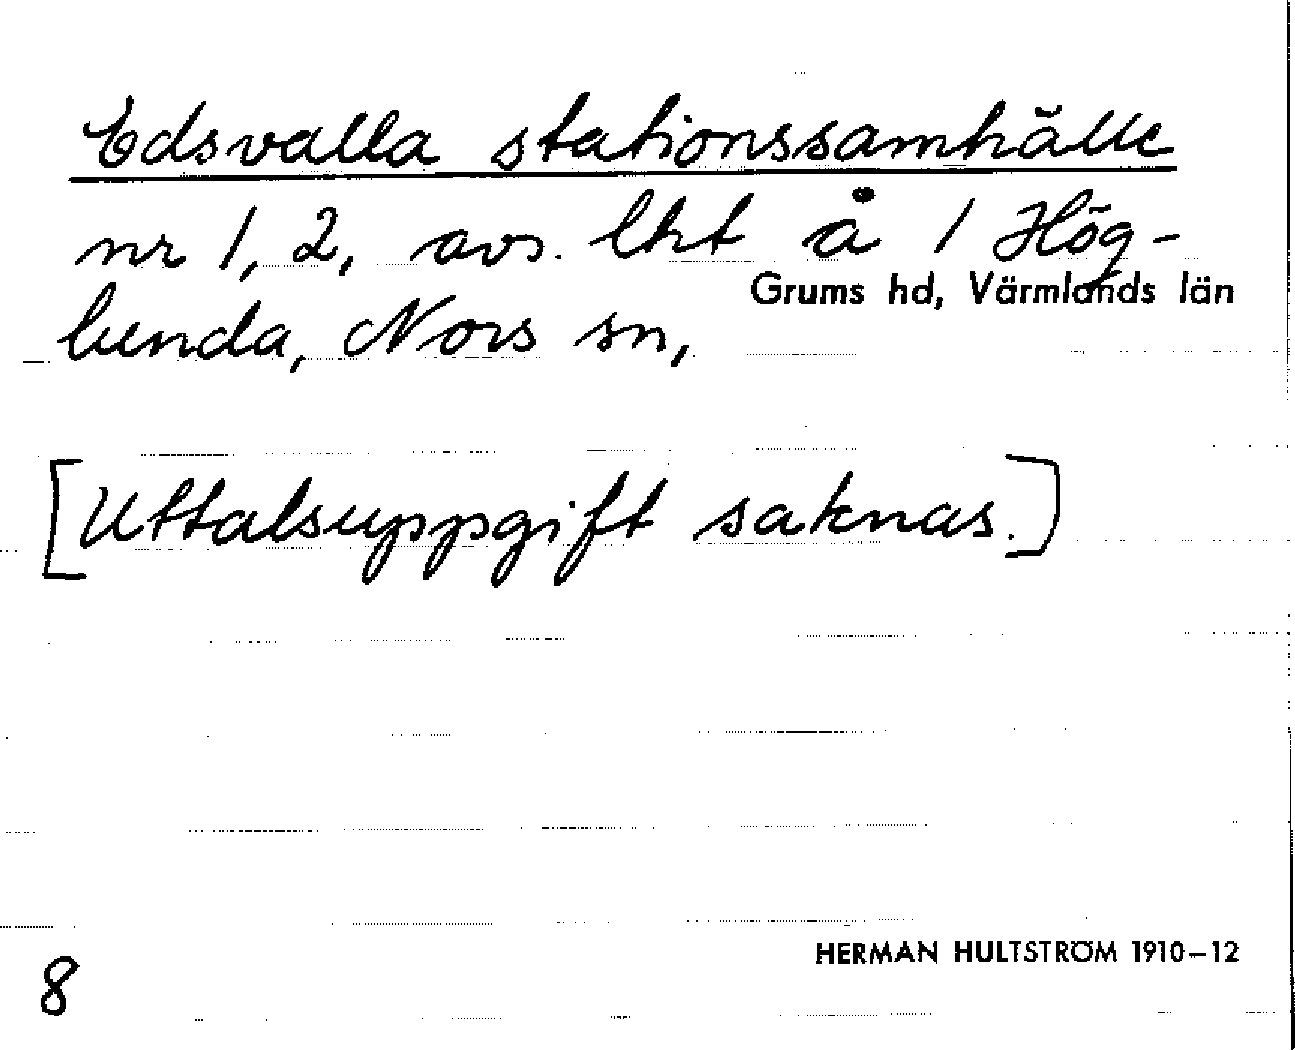 Edsvalla stationssamhälle
nr 1, 2, avs. lht å 1 Hög-
lunda, Nors sn,
Grums hd, Värmlands län
[Uttalsuppgift saknas.]
HERMAN HULTSTRÖM 1910–12
8